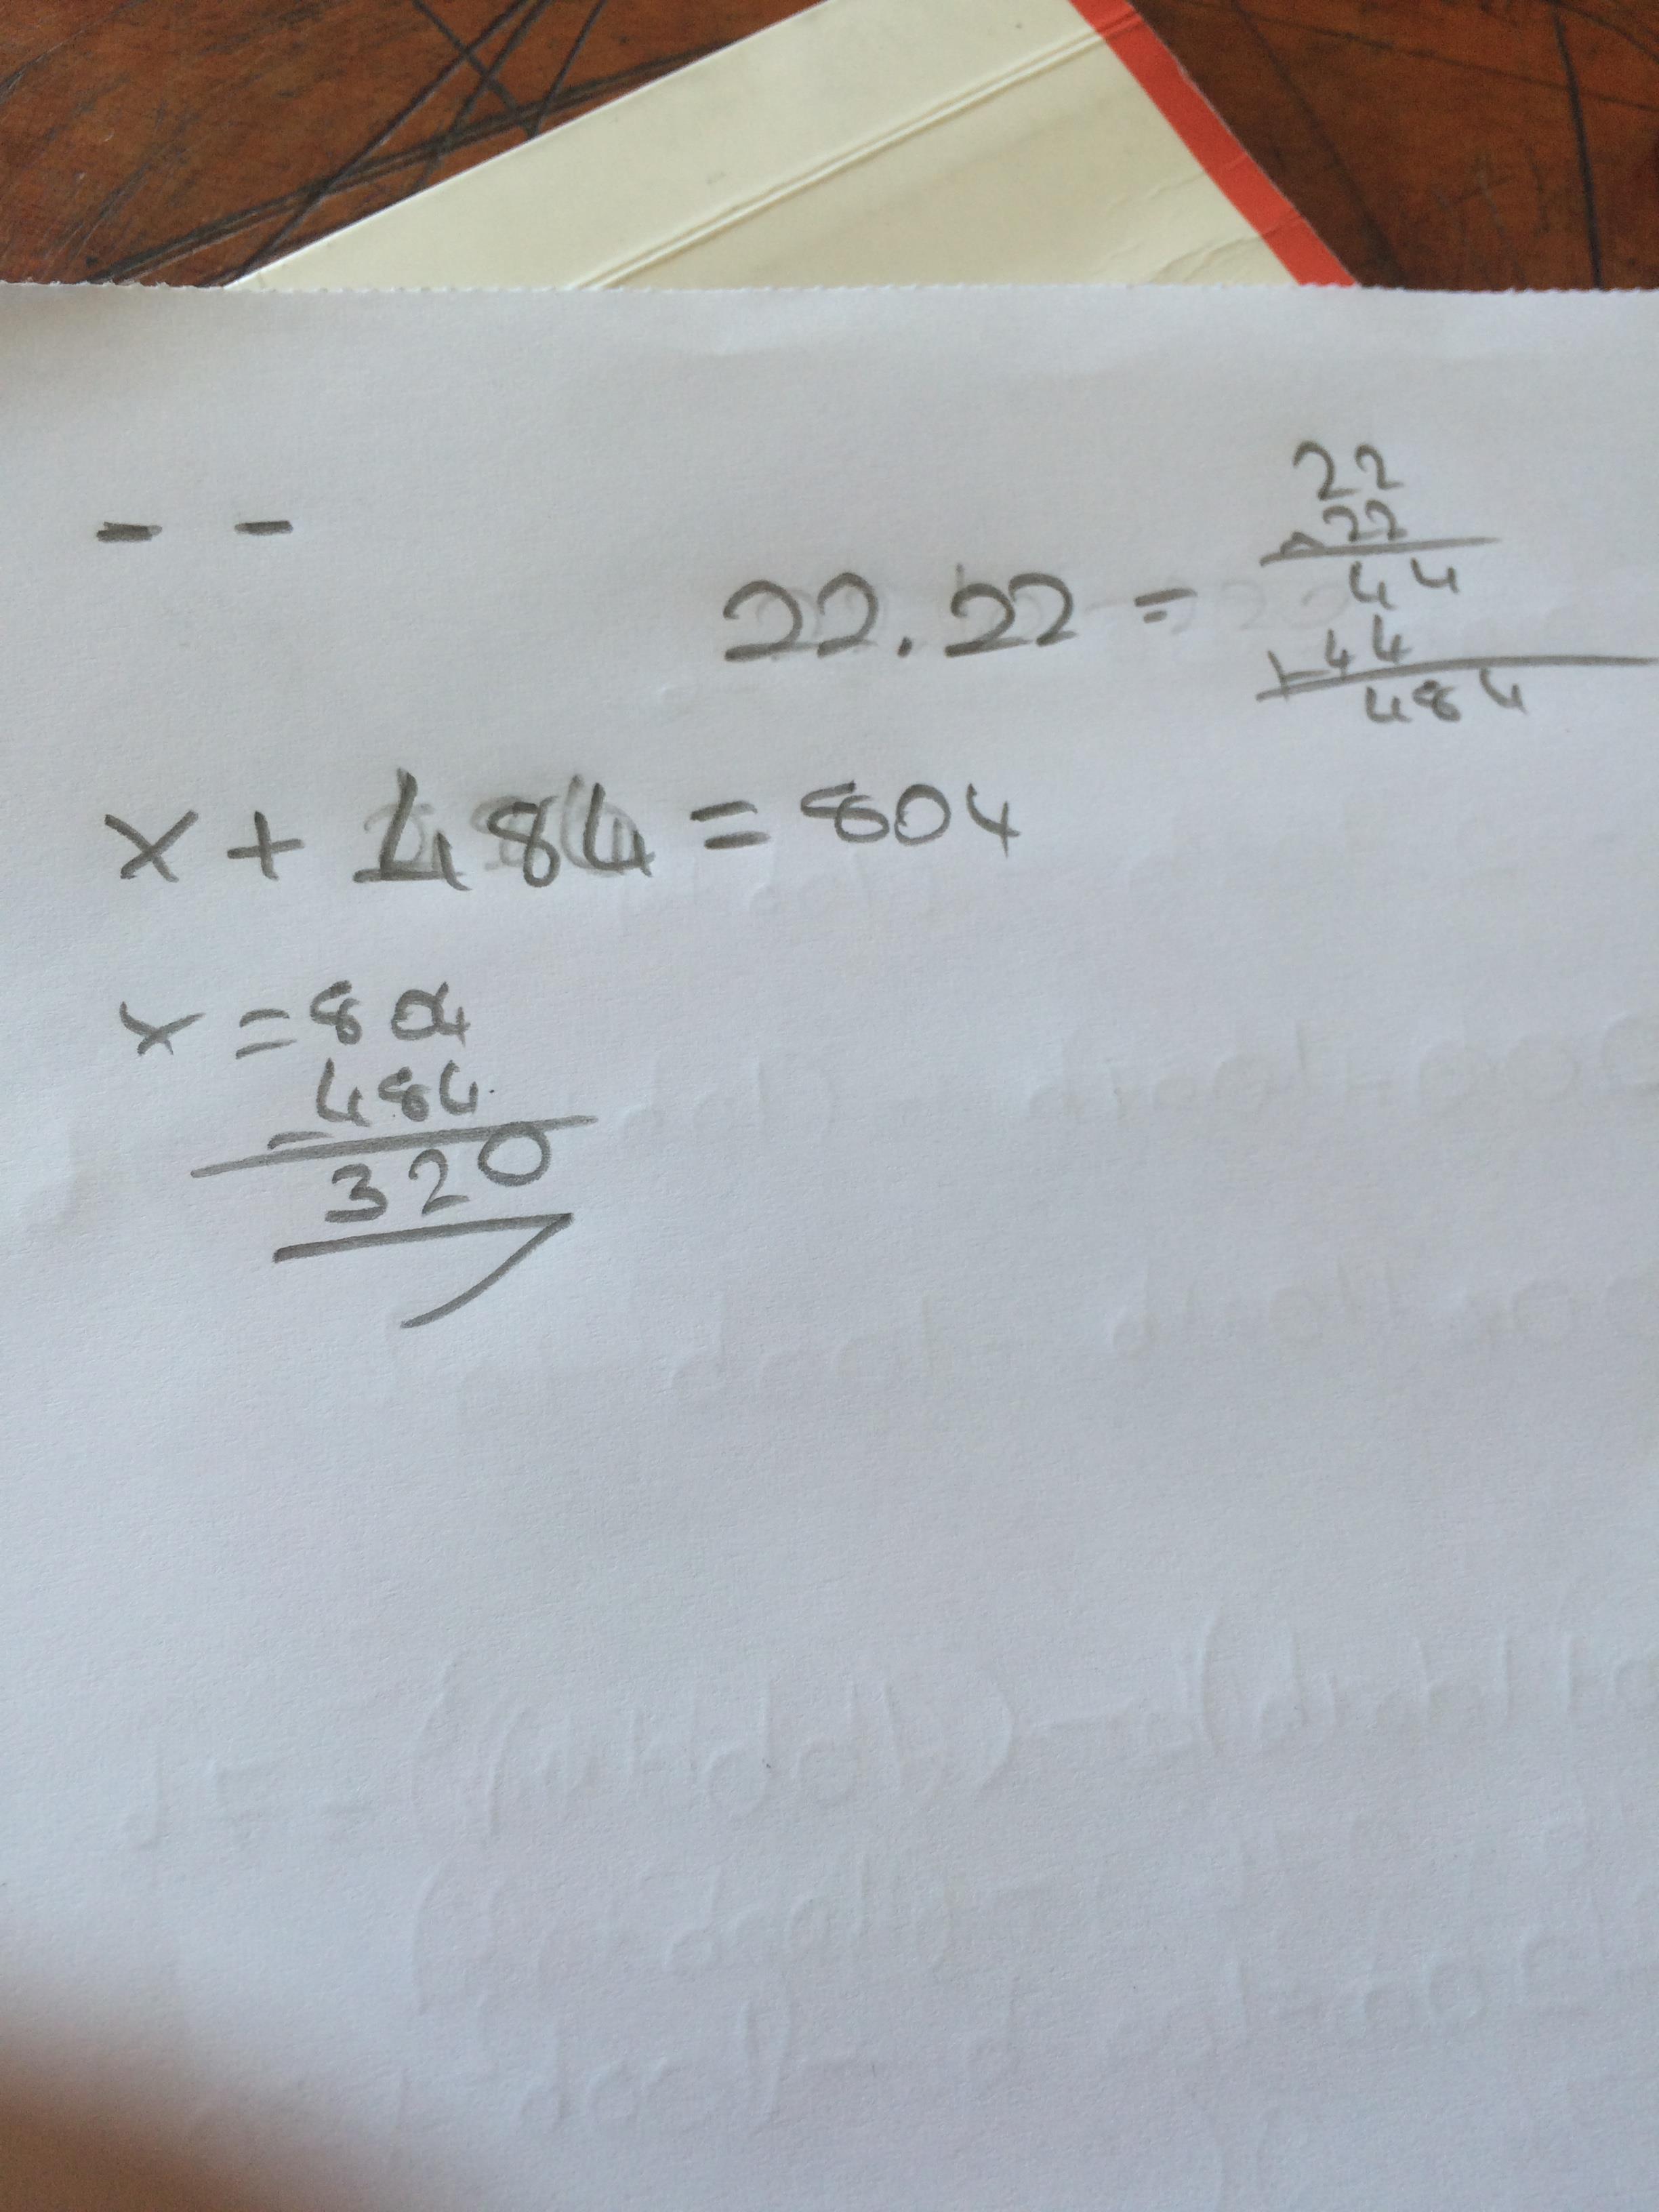 - -
22
22 . 22 = × 22
44
+ 44
484
x + 484 = 804
x = 804
484
-
320